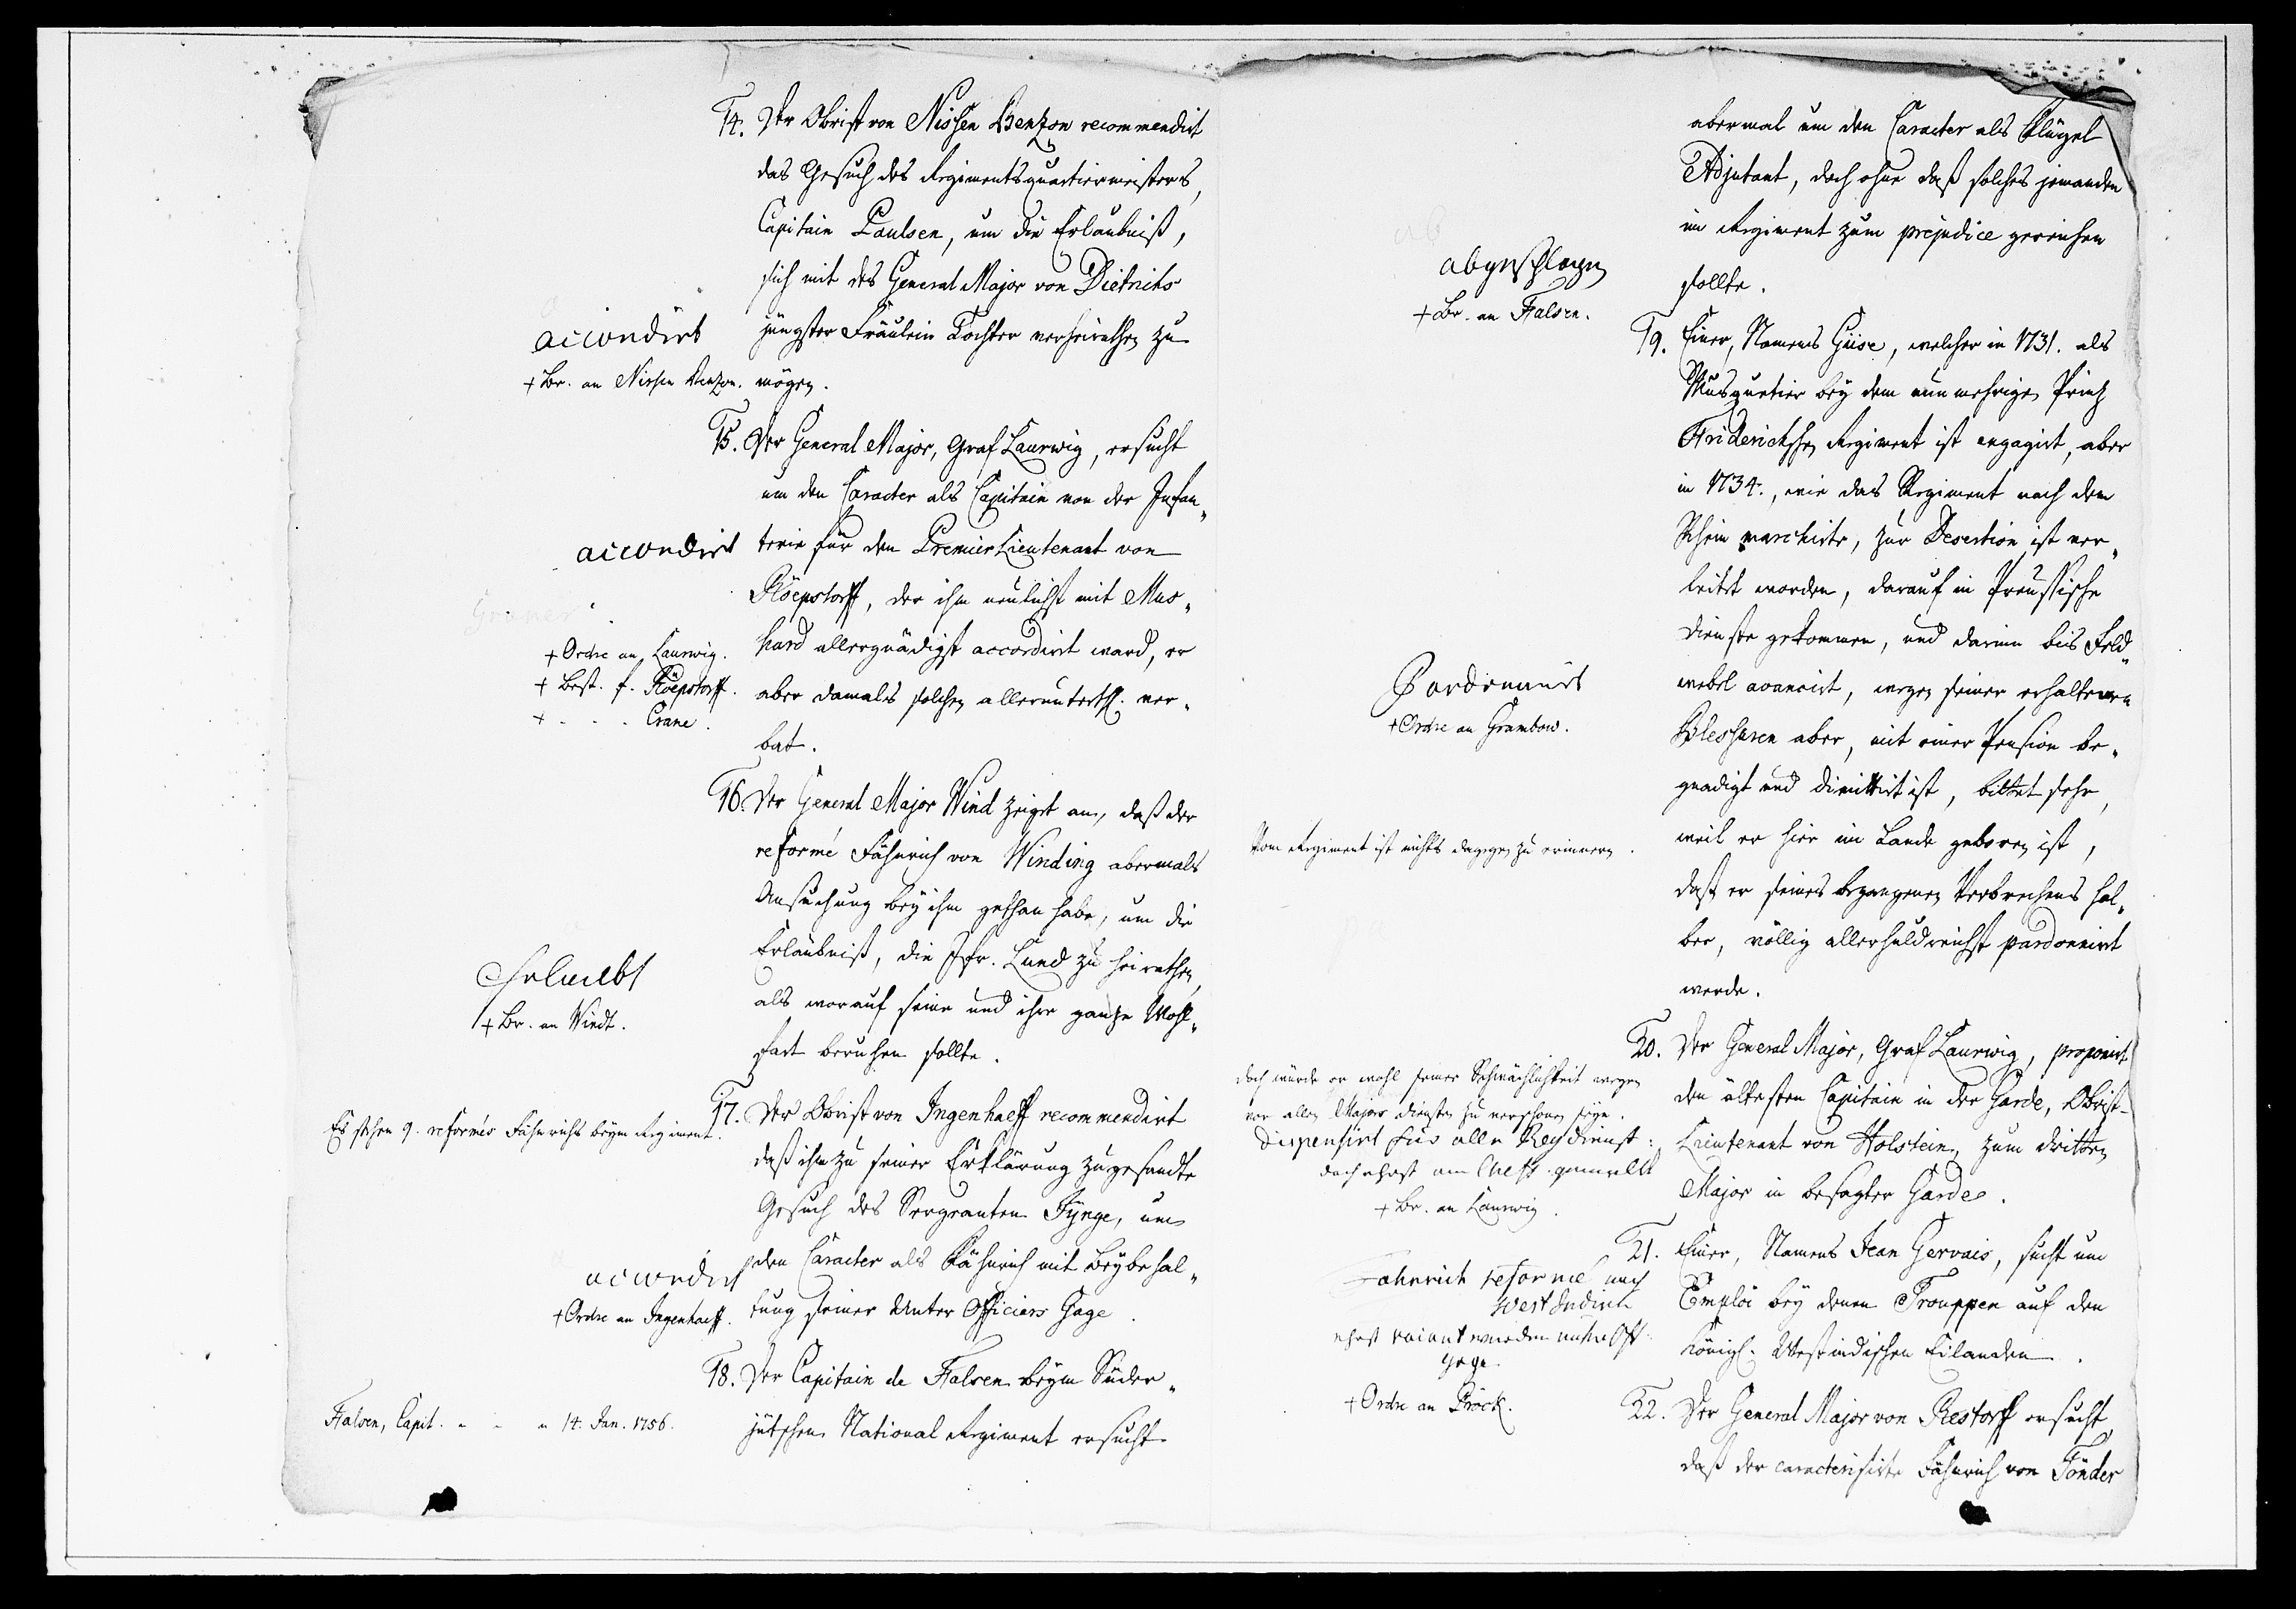 14. Der Obrist von Nissen Benzon recommendirt
das Gesuch des Regimentsquartiermeisters,
Capitain Paulsen, um die Erlaubniß,
sich mit des General Major von Dietrichs
jüngster Fräulein Tochter verheirathen zu
mögen.
accordirt
+ Br. an Nissen Benzon.
15. Der General Major, Graf Laurwig, ersucht
um den Caracter als Capitain von der Infan„
terie für den Premier Lieutenant von
Röepstorff, der ihm neulichst mit Mus„
hard allergnädigst accordirt ward, er
aber damals solchen alleruntertß. ver„
bat.
accordirt
+ Ordre an Laurwig.
+ Best. f. Röepstorff.
+ - - - Crane.
16. Der General Major Wind zeigt an, daß der
reformé Fähnrich von Winding abermals
Ansuchung bey ihm gethan habe, um die
Erlaubniß, die Jfr. Lund zu heirathen,
als worauf seine und ihre gantze Wohl„
fart beruhen sollte.
Erlaubt
+ Br. an Windt.
17. Der Obrist von Ingenhaeff recommendirt
daß ihm zu seiner Erklärung zugesandte
Gesuch des Sergeanten Fynge, um
den Caracter als Fähnrich mit Beybehal„
tung seiner Unter Officiers Gage.
Es stehen 9. reformés Fähnrichs beym Regiment.
accordirt
+ Ordre an Ingenhaeff.
18. Der Capitain de Falsen beym Süder„
jütschen National Regiment ersucht
Falsen, Capit. - - - 14. Jan. 1756.
abermal um den Caracter als Flügel
Adjutant, doch ohne daß solches jemanden
im Regiment zum prejudice gereichen
sollte.
abgeschlagen
+ Br. an Falsen.
19. Einer, Namens Güse, welcher in 1731. als
Musquetier bey dem nunmehrigen Prinz
Friderichschen Regiment ist engagirt, aber
in 1734., wie das Regiment nach dem
Rhein marchirte, zur Desertion ist ver„
leitet worden, darauf in Preussische
Dienste gekommen, und darinn bis Feld„
webel avancirt, wegen seiner erhaltenen
Blessuren aber, mit einer Pension be„
gnadigt und dimittirt ist, bittet sehr,
weil er hier im Lande geboren ist,
daß er seines begangenen Verbrechens hal„
ber, völlig allerhuldreichst pardonnirt
werde.
Pardonnirt
+ Ordre an Grambow.
Vom Regiment ist nichts dagegen zu erinnern.
20. Der General Major, Graf Laurwig, proponirt
den ältesten Capitain in der Garde, Obrist-
Lieutenant von Holstein, zum dritten
Major in besagter Garde.
doch würde er wohl seiner Schwächlichkeit wegen
vor allen Majors Diensten zu verschonen seyn.
Dispensirt für alle Dienst:
doch erst am Cheff gemeldt
+ Br. an Laurwig.
21. Einer, Namens Jean Gervais, sucht um
Emploi bey denen Trouppen auf den
Königl. Westindischen Eilanden.
Fahnrich reformé nach
West Indien
erst vacant werdende
Gage.
+ Ordre an Pröck.
22. Der General Major von Restorff ersucht,
daß der caracterisirte Fähnrich von Tönder